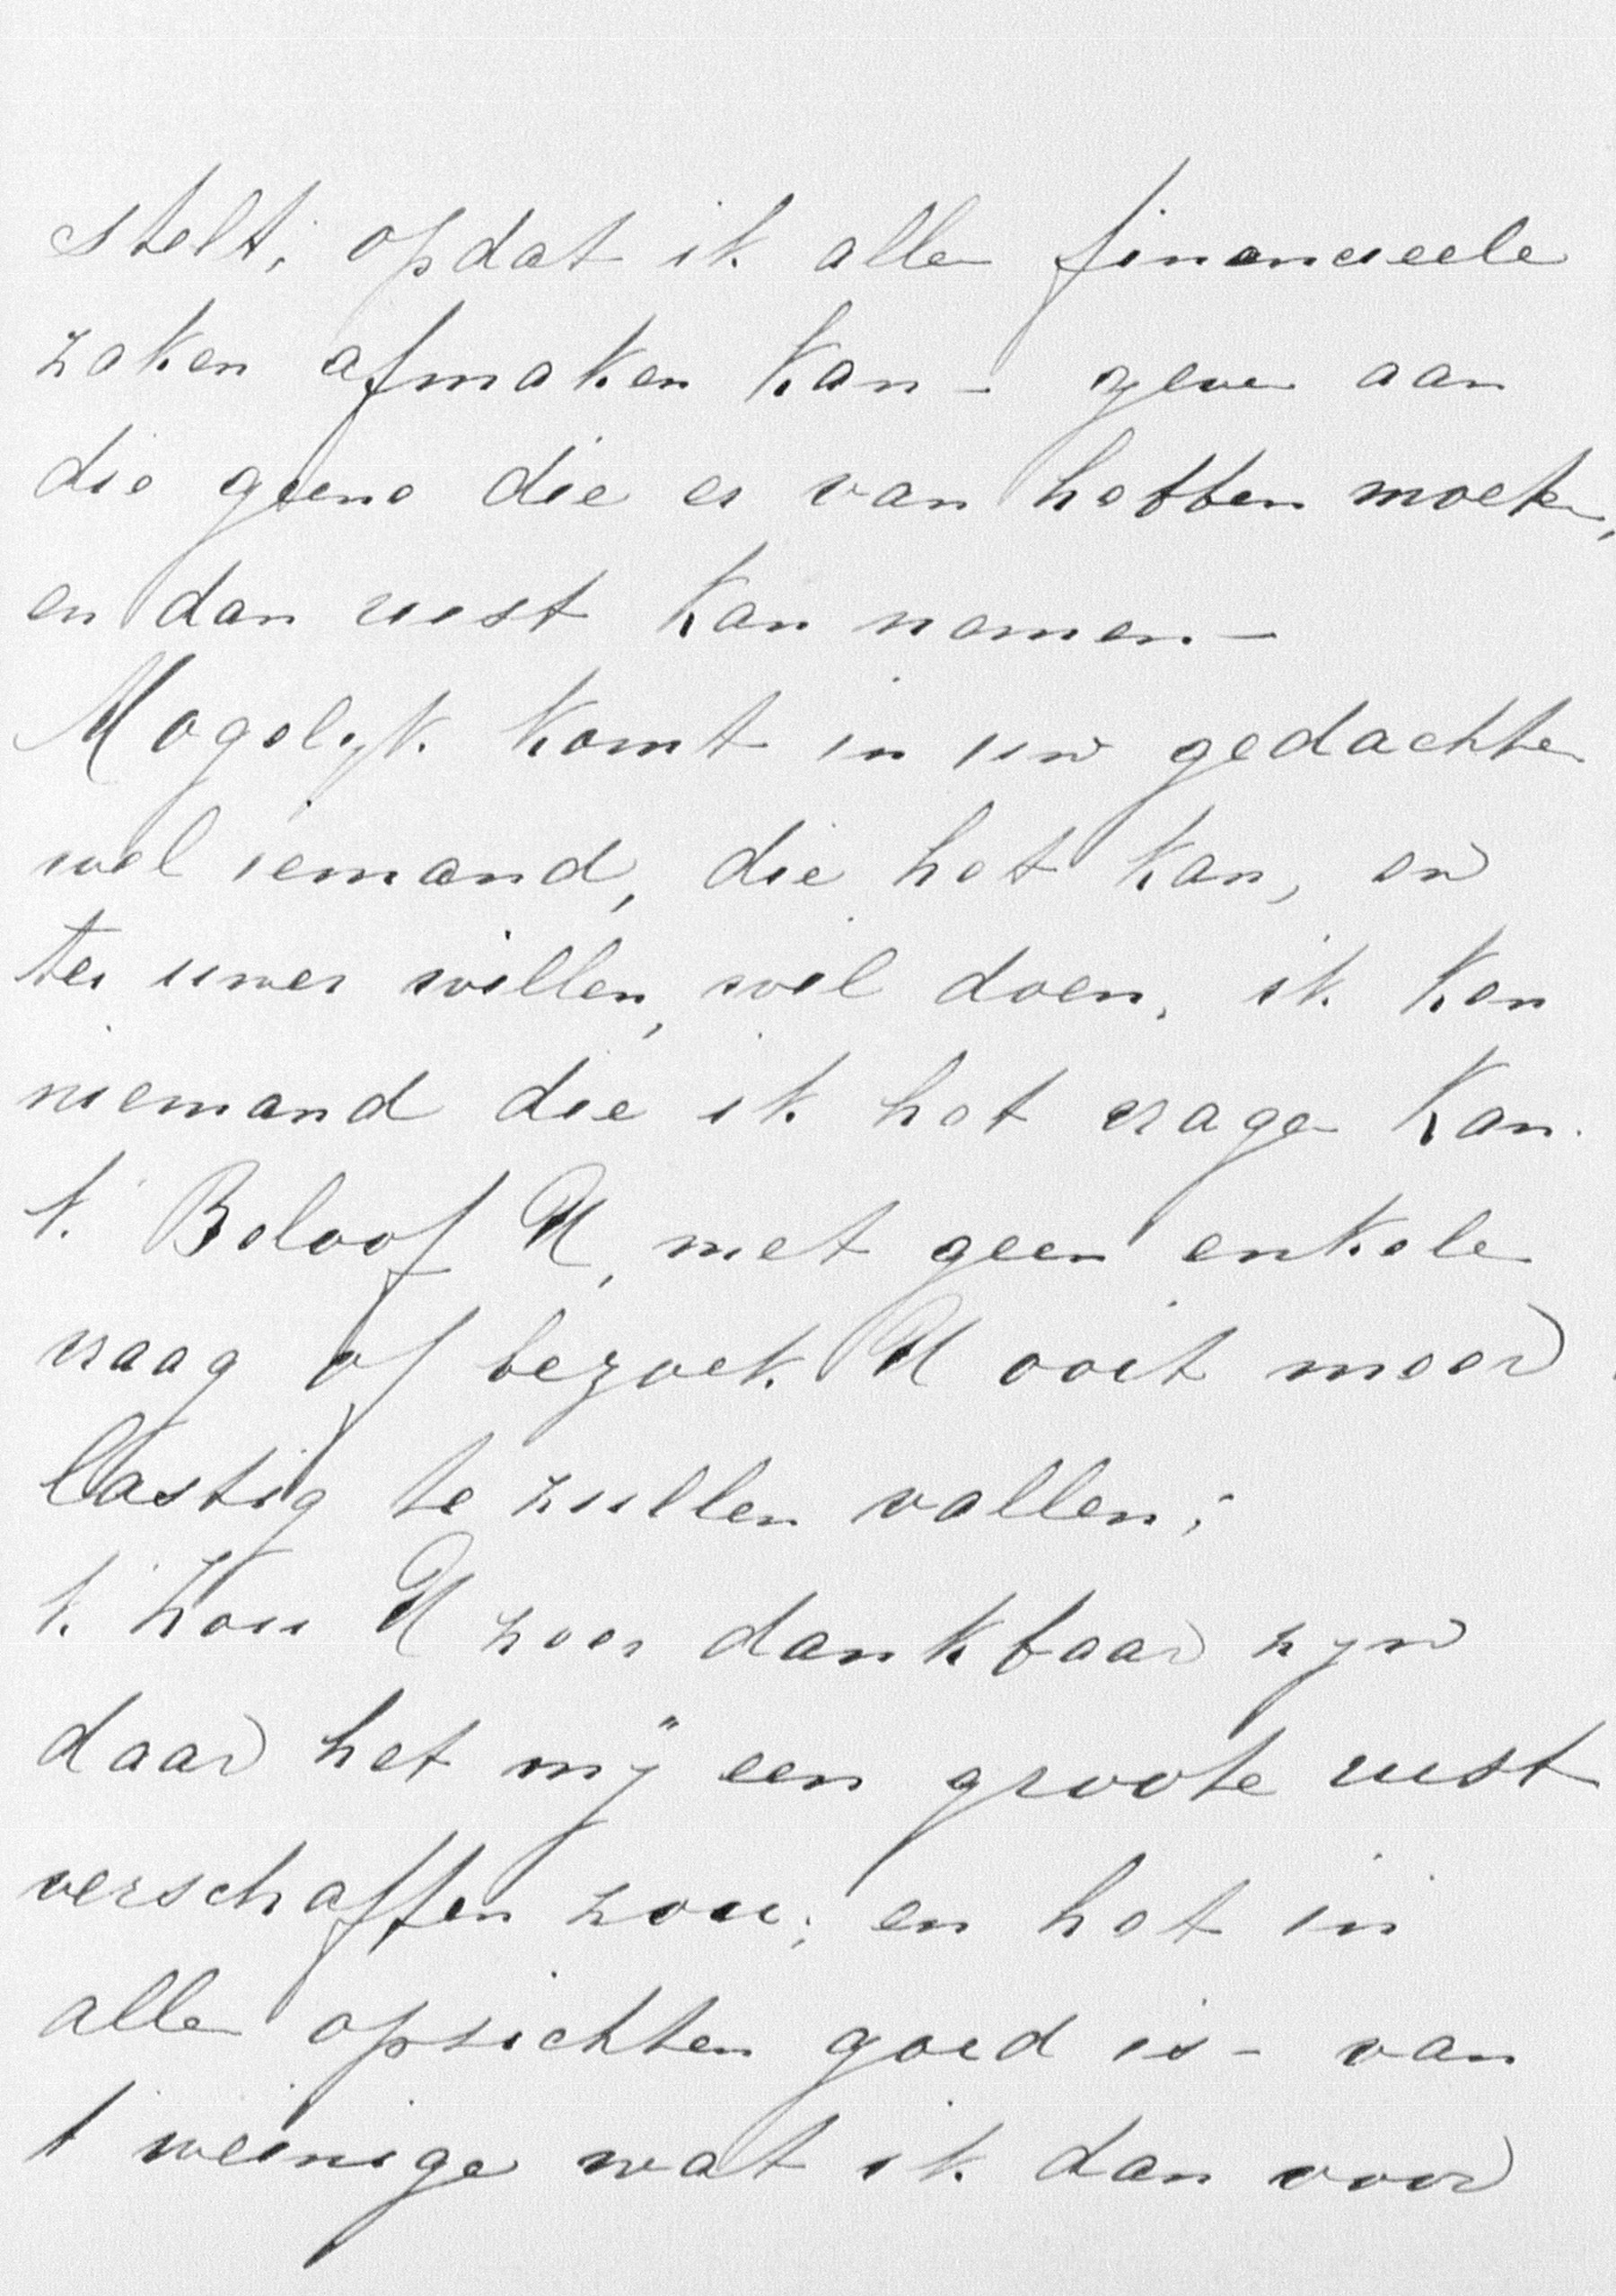 stelt, opdat ik alle financieele
zaken afmaken kan – geven aan
die geene die er van hebben moeten,
en dan rust kan nemen –
Mogelyk komt in uw gedachten
wel iemand, die het kan, en
ter uwer willen, wil doen, ik ken
niemand die ik het vragen kan.
'k Beloof U, met geen enkele
vraag of bezoek U ooit meer
lastig te zullen vallen;
'k Zou U zeer dankbaar zyn
daar het mÿ een groote rust
verschaffen zou; en het in
alle opsichten goed is – van
't weinige wat ik dan voor